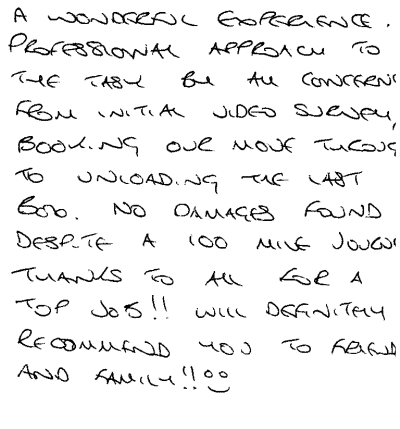 A WONDERFUL EXPERIENCE.
PROFESSIONAL APPROACH TO
THE TASK BY ALL CONCERN
FROM INITIAL VIDEO SURVEY,
BOOKING OUR MOVE THROUG
TO UNLOADING THE LAST
BOX. NO DAMAGES FOUND
DESPITE A 100 MILE JOURN
THANKS TO ALL FOR A
TOP JOB!! WILL DEFINITELY
RECOMMEND YOU TO FRIEND
AND FAMILY!! ☺